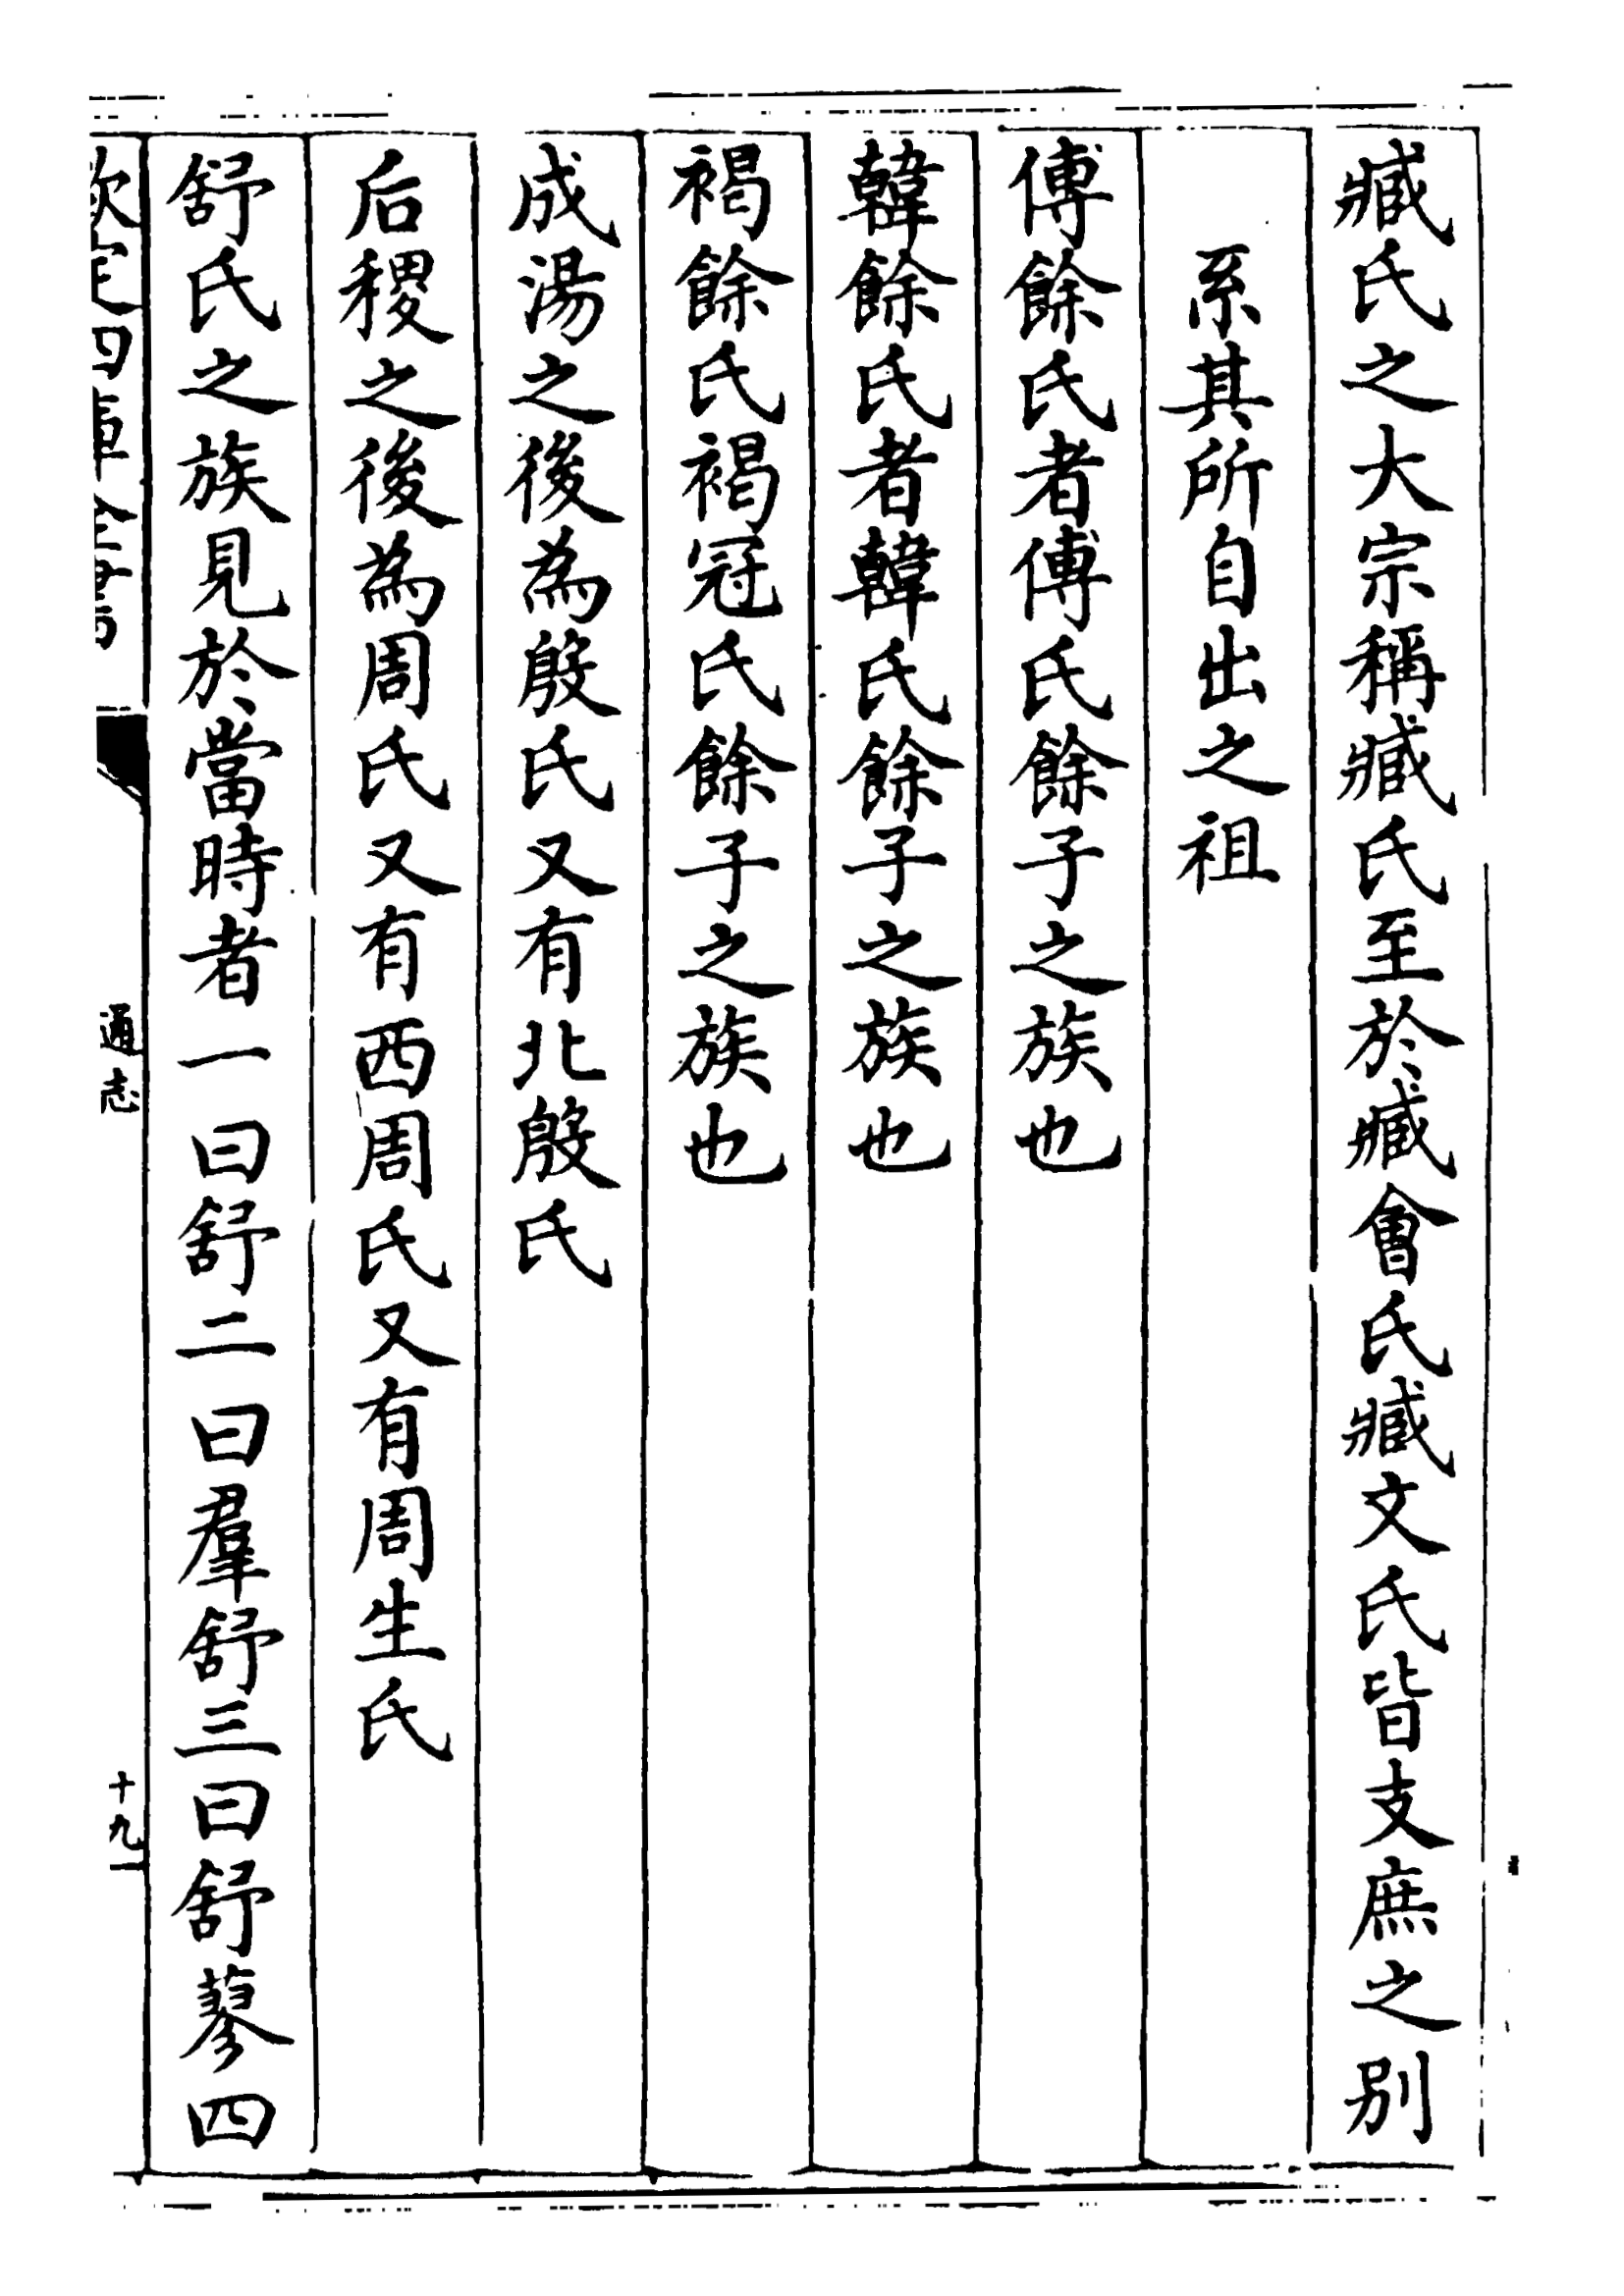 臧氏之大宗稱臧氏至於臧會氏臧文氏皆支庶之别
系其所自出之祖
傅餘氏者傅氏餘子之族也
韓餘氏者韓氏餘子之族也
褐餘氏褐冠氏餘子之族也
成湯之後為殷氏又有北殷氏
后稷之後為周氏又有西周氏又有周生氏
舒氏之族見於當時者一曰舒二曰羣舒三曰舒蓼四
欽定四庫全書
通志
十九